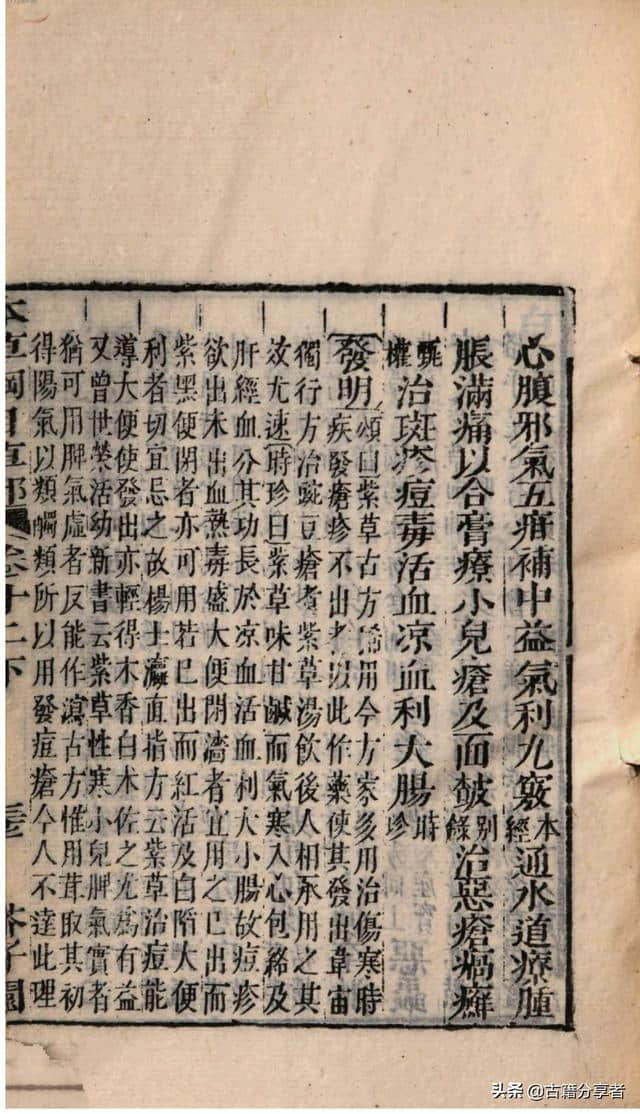 心腹邪氣五疳補中益氣利九竅本經通水道療腫
脹滿痛以合膏療小兒瘡及面皻別錄治惡瘡瘑癬
甄權治斑疹痘毒活血凉血利大腸時珍
發明頌曰紫草古方稀用今方家多用治傷寒時
疾發瘡疹不出者以此作藥使其發出韋宙
獨行方治豌豆瘡煑紫草湯飲後人相承用之其
效尤速時珍曰紫草味甘鹹而氣寒入心包絡及
肝經血分其功長於凉血活血利大小腸故痘疹
欲出未出血熱毒盛大便閉濇者宜用之已出而
紫黑便閉者亦可用若已出而紅活及白陷大便
利者切宜忌之故楊士瀛直指方云紫草治痘能
導大便使發出亦輕得木香白木佐之尤爲有益
又曾世榮活幼新書云紫草性寒小兒脾氣實者
猶可用脾氣虛者反能作瀉古方惟用茸取其初
得陽氣以類觸類所以用發痘瘡今人不達此理
本草綱目草部 卷十二下 芥子園
头条 @古籍分享者